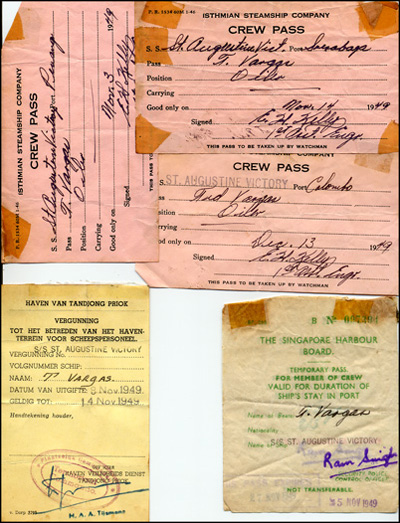 P. B. 1234 60M 1-46
ISTHMIAN STEAMSHIP COMPANY
CREW PASS
S. S. St Augustine Victory Port Penang
Pass T. Vargas
Position Oiler
Carrying
Good only on Nov. 3 1949
Signed E. H. Kelly
THIS PASS TO BE
P. B. 1234 60M 1-46
ISTHMIAN STEAMSHIP COMPANY
CREW PASS
S. S. St. Augustine Vict. Port Surabaya
Pass T. Vargas
Position Oiler
Carrying
Good only on Nov. 14 1949
Signed E. H. Kelly
1st Asst. Engr.
THIS PASS TO BE TAKEN UP BY WATCHMAN
CREW PASS
S. S. ST. AUGUSTINE VICTORY Port Colombo
Pass Fred Vargas
Position Oiler
Carrying
Good only on Dec. 13 1949
Signed E. H. Kelly
1st Asst. Engr.
THIS PASS TO BE TAKEN UP BY WATCHMAN
HAVEN VAN TANDJONG PRIOK
VERGUNNING
TOT HET BETREDEN VAN HET HAVEN-
TERREIN VOOR SCHEEPSPERSONEEL.
S/S ST. AUGUSTINE VICTORY
VERGUNNING No.
VOLGNUMMER SCHIP:
NAAM: T. VARGAS.
DATUM VAN UITGIFTE: 8 Nov. 1949
GELDIG TOT: 14 Nov. 1949
Handtekening houder,
HAVEN VEILIGHEIDS DIENST
TANDJONG PRIOK
H. A. A. Tilemann
v. Dorp
B No
THE SINGAPORE HARBOUR
BOARD.
TEMPORARY PASS
FOR MEMBER OF CREW
VALID FOR DURATION OF
SHIP'S STAY IN PORT
Name T. Vargas
Nationality
Name of Ship S/S ST. AUGUSTINE VICTORY
Ram Singh
CONTROL OFFICER
NOT TRANSFERABLE.
5 NOV 1949